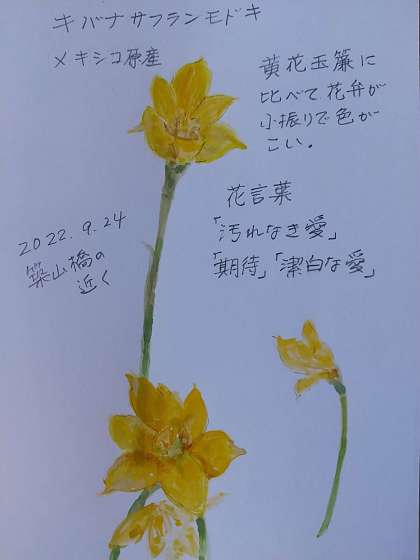 キバナサフランモドキ
メキシコ原産
黄花玉簾に
比べて花弁が
小振りで色が
こい。
花言葉
「汚れなき愛」
「期待」「潔白な愛」
2022.9.24
築山橋の
近く